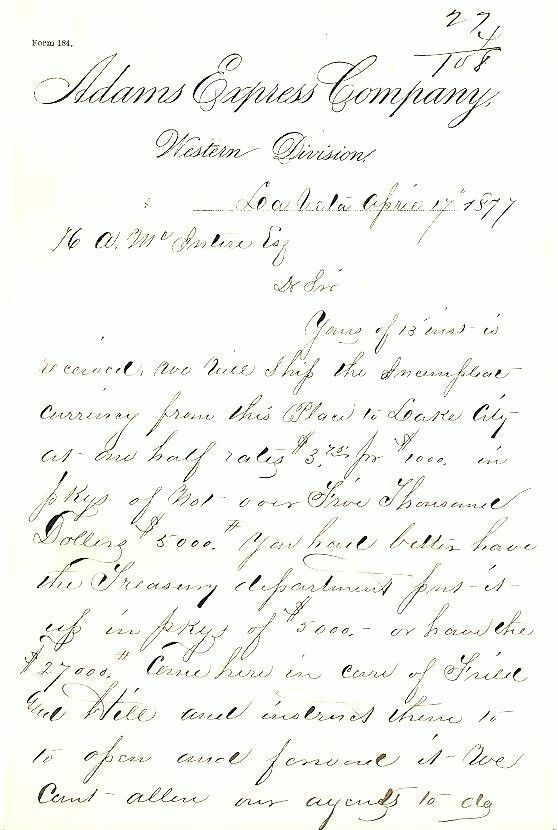 27
4
108
Form 184.
Adams Express Company,
Western Division.
La Veta April 17" 1877
H. A. McIntire Esq
Dr Sir
Yours of 13 inst is
received, We Will Ship the Incomplete
currency from this Place to Lake City
at one half rates $3.75 pr $1000. in
pkgs of Not over Five Thousand
Dollers $5000.# You had better have
the Treasury department put it
up in pkgs of $5000.- or have the
$27000.# Come here in care of Field
and Hill and instruct them to
to open and forward it We
Cant allow our agents to do